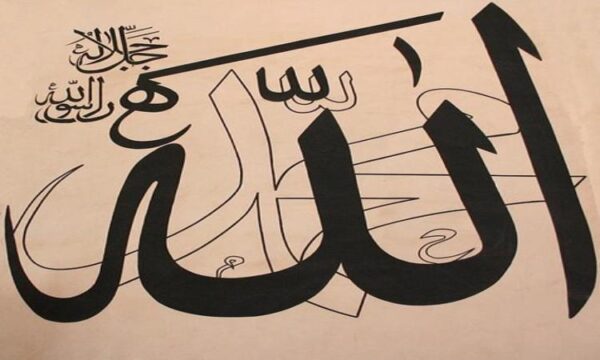 جل جلاله
رسول الله
الله
محمد